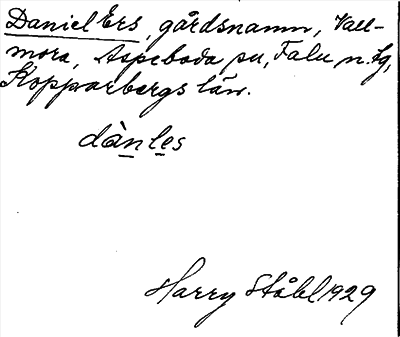 Daniel Ers, gårdsnamn, Vall-
mora, Aspeboda sn, Falu n. tg,
Kopparbergs län.
dànles
Harry Ståhl 1929